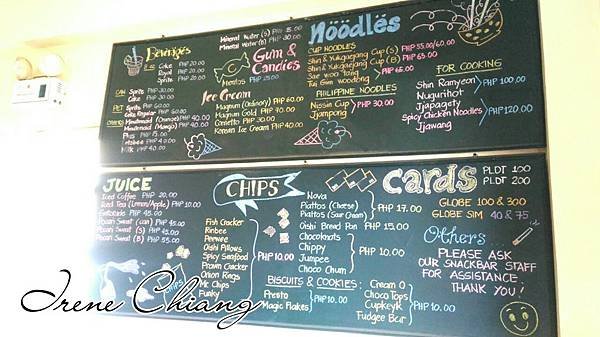 Beverages
8 oz Coke PHP 20.00
Royal PHP 20.00
Sprite PHP 20.00
CAN Sprite PHP 30.00
Coke PHP 30.00
PET Sprite PHP
Coke Regular PHP
Minutemaid (Orange) PHP 40.00
Minutemaid (Mango) PHP 40.00
Plus PHP 15.00
Letsbee PHP
Milk PHP 40.00
Mineral Water (S) PHP 15.00
Mineral Water PHP 30.00
Gum & Candies
Mentos PHP 25.00
Ice Cream
Magnum (Ordinary) PHP 60.00
Magnum Gold PHP 70.00
Cornetto PHP 30.00
Korean Ice Cream PHP 40.00
Nöödlës
CUP NOODLES
Shin & Yukgaejang Cup (S) PHP 55.00/60.00
Shin & Yukgaejang Cup (B) PHP 65.00
Sae woo Tang
Tui Gim woodong PHP 65.00
PHILIPPINE NOODLES
Nissin Cup
Jjampong PHP 30.00
FOR COOKING
Shin Ramyeon PHP 100.00
Nugurihot
Jjapagety
Spicy Chicken Noodles PHP 120.00
Jjawang
JUICE
Iced Coffee PHP 20.00
Iced Tea (Lemon/Apple) PHP 10.00
Gatorade PHP 45.00
Pocari Sweat (can) PHP 45.00
Pocari Sweat (S) PHP 45.00
Pocari Sweat (B) PHP 55.00
CHIPS
Fish Cracker
Rinbee
Peewee
Oishi Pillows
Spicy Seafood
Prawn Cracker
Onion Rings
Mr. Chips
Funky
PHP 10.00
Nova
Piattos (Cheese)
Piattos (Sour Cream)
PHP 17.00
Oishi Bread Pan PHP 15.00
Chocoknots
Chippy
Jumpee
Choco Chum
PHP 10.00
BISCUITS & COOKIES:
Presto
Magic Flakes
PHP 10.00
Cream O
Choco Tops
Cupkeyk
Fudgee Bar
PHP 10.00
cards
PLDT 100
PLDT 200
GLOBE 100 & 300
GLOBE SIM 40 & 75
Others...
PLEASE ASK
OUR SNACKBAR STAFF
FOR ASSISTANCE.
THANK YOU!
Irene Chiang